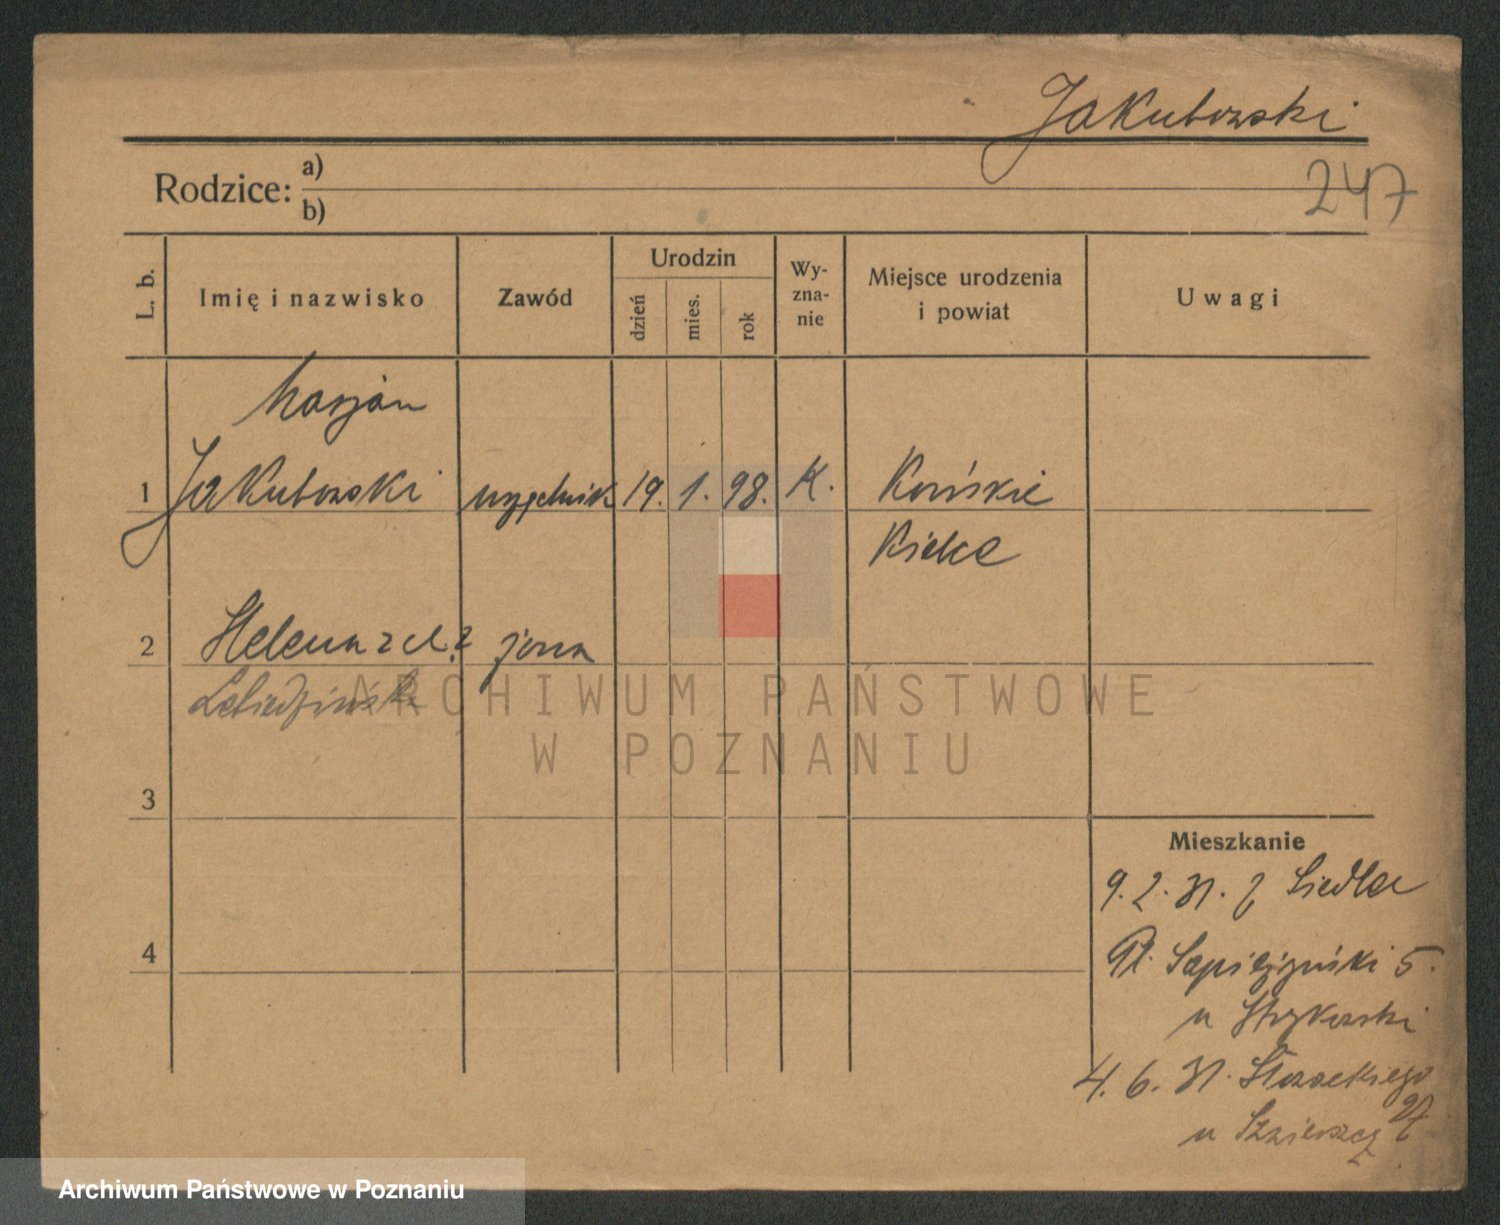 Jakubowski
247
Rodzice: a)
b)
L. b. Imię i nazwisko Zawód Urodzin dzień mies. rok Wy-zna-nie Miejsce urodzenia i powiat Uwagi
Marjan
1 Jakubowski urzędnik 19. 1. 98. K. Końskie
Kielce
2 Helena z d. ? żona
Lebiedzińska
ARCHIWUM PAŃSTWOWE
W POZNANIU
3
Mieszkanie
9. 2. 31. z Siedlce
4
Pl. Sapieżyński 5.
u
4. 6. 31. Słowackiego
u
Archiwum Państwowe w Poznaniu